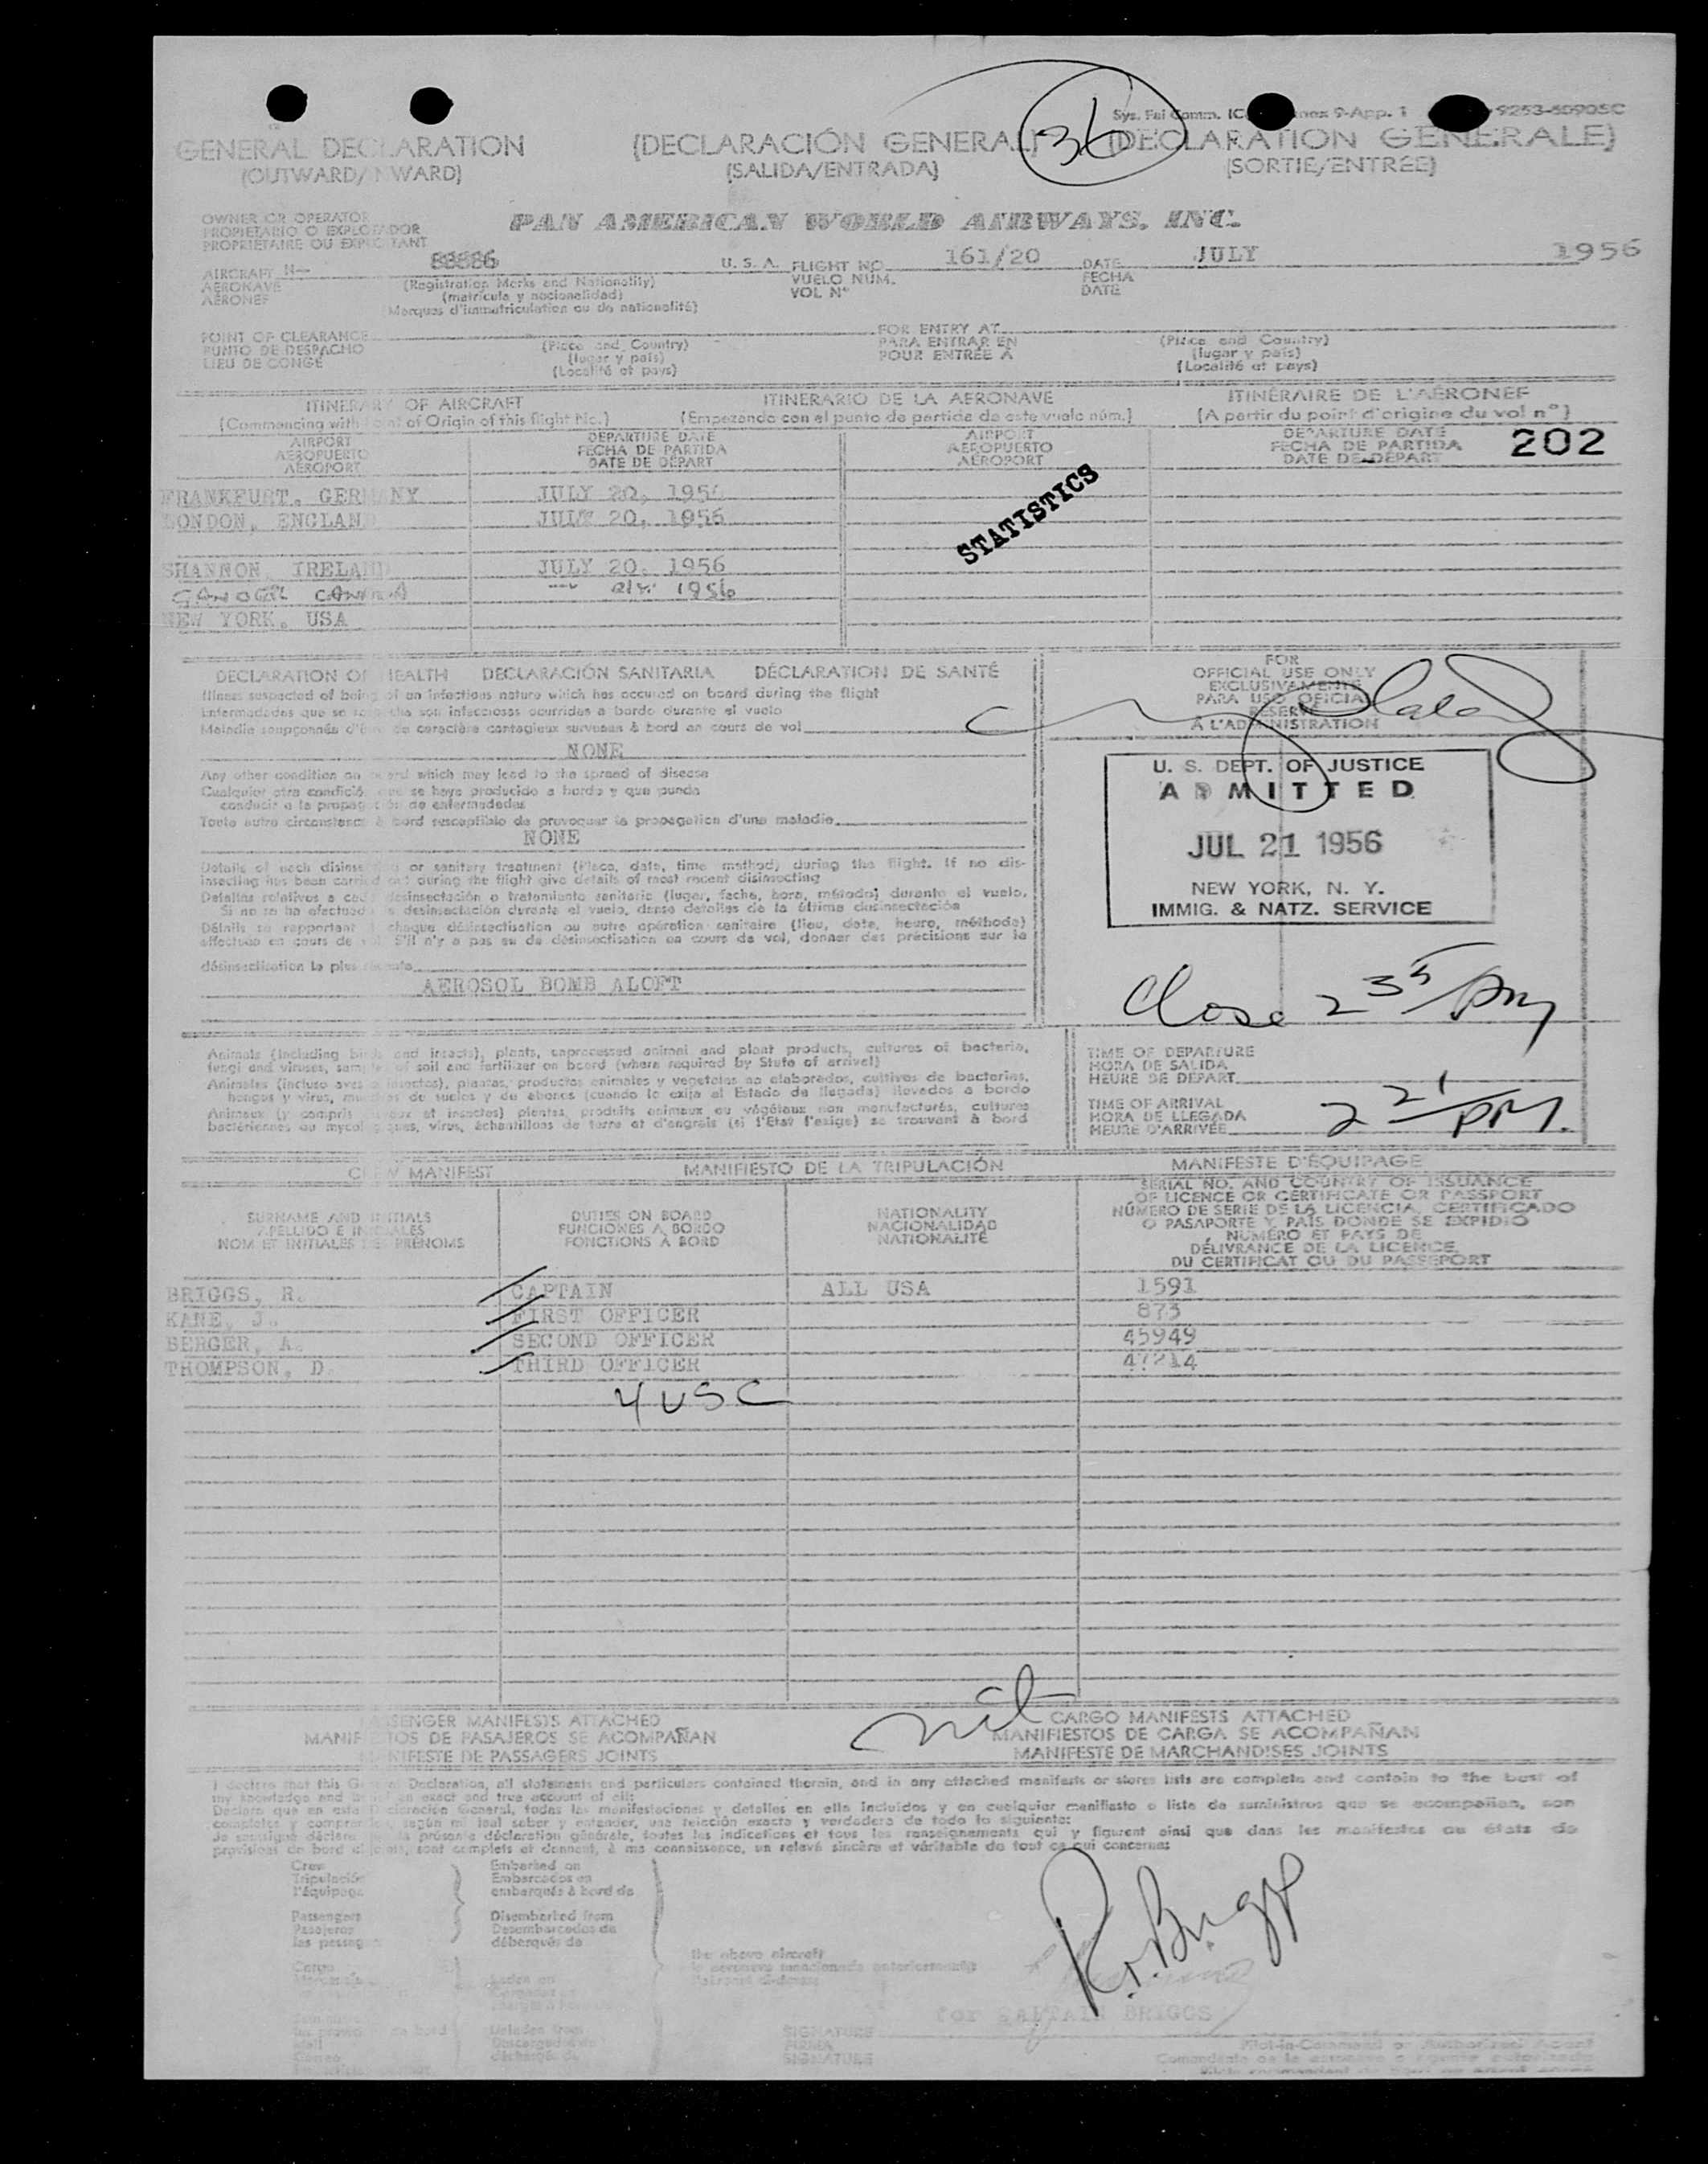 36
Sys. Fal Comm. 9-App. 1 9253-50905C
GENERAL DECLARATION (DECLARACIÓN GENERAL) (DECLARATION GENERALE)
(OUTWARD/INWARD) (SALIDA/ENTRADA) (SORTIE/ENTREE)
OWNER OR OPERATOR
PROPIETARIO O EXPLOTADOR
PROPRIETAIRE OU EXPLOITANT
PAN AMERICAN WORLD AIRWAYS, INC.
AIRCRAFT N— U. S. A. FLIGHT NO. 161/20 DATE JULY 1956
AERONAVE (Registration Marks and Nationality) VUELO NUM. FECHA
AÉRONEF (matrícula y nacionalidad) VOL Nº DATE
Marques d'immatriculation ou de nationalité)
POINT OF CLEARANCE FOR ENTRY AT
PUNTO DE DESPACHO (Place and Country) PARA ENTRAR EN (Place and Country)
LIEU DE CONGÉ (lugar y país) POUR ENTRÉE A (lugar y país)
(Localité et pays) (Localité et pays)
ITINERARY OF AIRCRAFT ITINERARIO DE LA AERONAVE ITINÉRAIRE DE L'AÉRONEF
(Commencing with Point of Origin of this flight No.) (Empezando con el punto de partida de este vuelo núm.) (A partir du point d'origine du vol nº)
AIRPORT DEPARTURE DATE AIRPORT DEPARTURE DATE
AEROPUERTO FECHA DE PARTIDA AEROPUERTO FECHA DE PARTIDA 202
AÉROPORT DATE DE DÉPART AÉROPORT DATE DE DÉPART
FRANKFURT, GERMANY JULY 20, 1956
LONDON, ENGLAND JULY 20, 1956
STATISTICS
SHANNON, IRELAND JULY 20, 1956
CANADA 1956
NEW YORK, USA
DECLARATION OF HEALTH DECLARACIÓN SANITARIA DÉCLARATION DE SANTÉ
Illness suspected of being of an infectious nature which has occured on board during the flight
Enfermedades que se sospecha son infecciosas ocurridas a bordo durante el vuelo
Maladie soupçonnée d'être de caractère contagieux survenue à bord en cours de vol
NONE
Any other condition on board which may lead to the spread of disease
Cualquier otra condición que se haya producido a bordo y que pueda
conducir a la propagación de enfermedades
Toute autre circonstance à bord susceptible de provoquer la propagation d'une maladie
NONE
Details of each disinsecting or sanitary treatment (Place, date, time method) during the flight. If no dis-
insecting has been carried out during the flight give details of most recent disinsecting
Detalles relativos a cada desinsectación o tratamiento sanitario (lugar, fecha, hora, método) durante el vuelo.
Si no se ha efectuado la desinsectación durante el vuelo, dense detalles de la última desinsectación
Détails se rapportant à chaque désinsectisation ou autre opération sanitaire (lieu, date, heure, méthode)
effectuée en cours de vol. S'il n'y a pas eu de désinsectisation en cours de vol, donner des précisions sur la
désinsectisation la plus récente
AEROSOL BOMB ALOFT
FOR
OFFICIAL USE ONLY
EXCLUSIVAMENTE
PARA USO OFICIAL
RESERVÉ
À L'ADMINISTRATION
U. S. DEPT. OF JUSTICE
ADMITTED
JUL 21 1956
NEW YORK, N. Y.
IMMIG. & NATZ. SERVICE
Close 2 35 PM
Animals (including birds and insects), plants, unprocessed animal and plant products, cultures of bacteria,
fungi and viruses, samples of soil and fertilizer on board (where required by State of arrival)
Animales (incluso aves e insectos), plantas, productos animales y vegetales no elaborados, cultivos de bacterias,
hongos y virus, muestras de suelos y de abonos (cuando lo exija el Estado de llegada) llevados a bordo
Animaux (y compris oiseaux et insectes) plantes, produits animaux ou végétaux non manufacturés, cultures
bactériennes ou mycologiques, virus, échantillons de terre et d'engrais (si l'Etat l'exige) se trouvant à bord
TIME OF DEPARTURE
HORA DE SALIDA
HEURE DE DÉPART
TIME OF ARRIVAL
HORA DE LLEGADA
HEURE D'ARRIVÉE
2 21 PM.
CREW MANIFEST MANIFIESTO DE LA TRIPULACIÓN MANIFESTE D'ÉQUIPAGE
SURNAME AND INITIALS
APELLIDO E INICIALES
NOM ET INITIALES DES PRÉNOMS
DUTIES ON BOARD
FUNCIONES A BORDO
FONCTIONS À BORD
NATIONALITY
NACIONALIDAD
NATIONALITÉ
SERIAL NO. AND COUNTRY OF ISSUANCE
OF LICENCE OR CERTIFICATE OR PASSPORT
NÚMERO DE SERIE DE LA LICENCIA, CERTIFICADO
O PASAPORTE Y PAÍS DONDE SE EXPIDIÓ
NUMÉRO ET PAYS DE
DÉLIVRANCE DE LA LICENCE,
DU CERTIFICAT OU DU PASSEPORT
BRIGGS, R. CAPTAIN ALL USA 1591
KANE, J. FIRST OFFICER 873
BERGER, A. SECOND OFFICER 45949
THOMPSON, D. THIRD OFFICER 47214
4 USC
nil
PASSENGER MANIFESTS ATTACHED CARGO MANIFESTS ATTACHED
MANIFIESTOS DE PASAJEROS SE ACOMPAÑAN MANIFIESTOS DE CARGA SE ACOMPAÑAN
MANIFESTE DE PASSAGERS JOINTS MANIFESTE DE MARCHANDISES JOINTS
I declare that this General Declaration, all statements and particulars contained therein, and in any attached manifests or stores lists are complete and contain to the best of
my knowledge and belief an exact and true account of all:
Declaro que en esta Declaración General, todas las manifestaciones y detalles en ella incluidos y en cualquier manifiesto o lista de suministros que se acompañan, son
completos y comprenden, según mi leal saber y entender, una relación exacta y verdadera de todo lo siguiente:
Je soussigné déclare que la présente déclaration générale, toutes les indications et tous les renseignements qui y figurent ainsi que dans les manifestes ou états de
provisions de bord ci-joints, sont complets et donnent, à ma connaissance, un relevé sincère et véritable de tout ce qui concerne:
Crew Embarked on
Tripulación Embarcados en
l'équipage embarqués à bord de
Passengers Disembarked from
Pasajeros Desembarcados de
les passagers débarqués de
the above aircraft
la aeronave mencionada anteriormente
Cargo Laden on
R. Briggs
for CAPTAIN BRIGGS
Unladen from
SIGNATURE
FIRMA
SIGNATURE
Pilot-in-Command or Authorized Agent
Comandante de la aeronave o agente autorizado